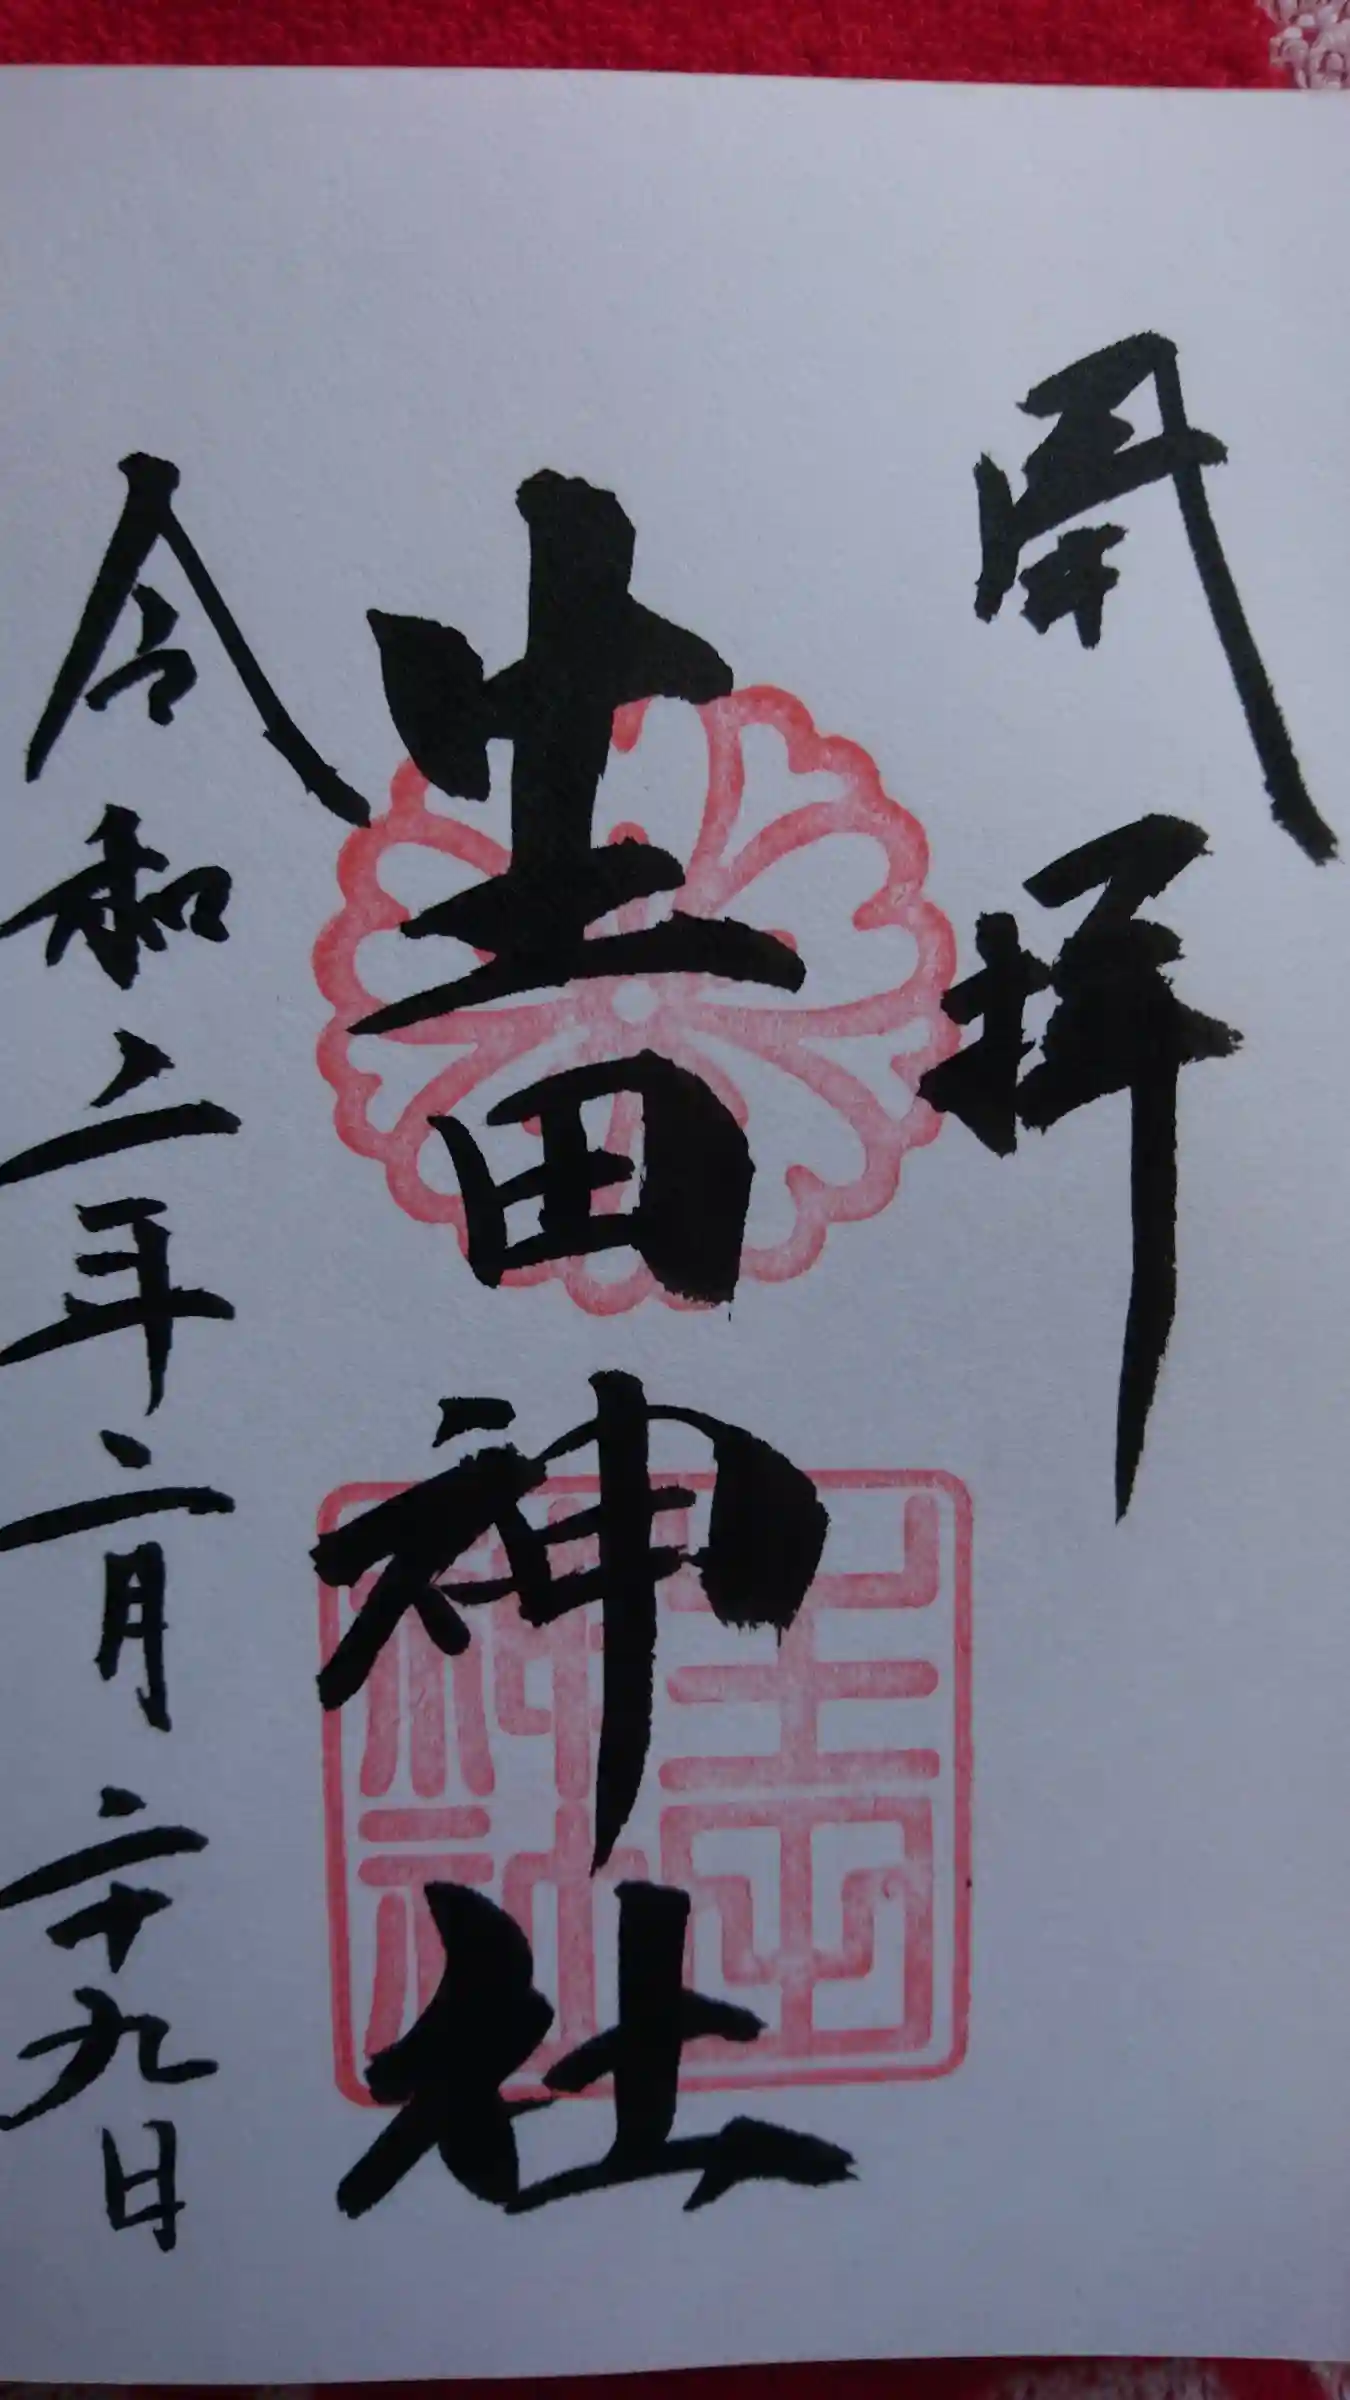 開拝
生田神社
令和二年二月二十九日
生田
神社